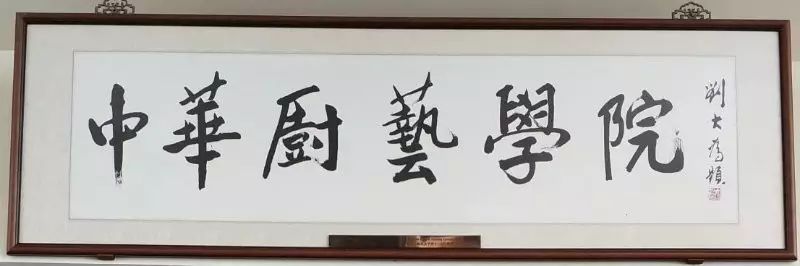 中華厨藝學院
劉大為題